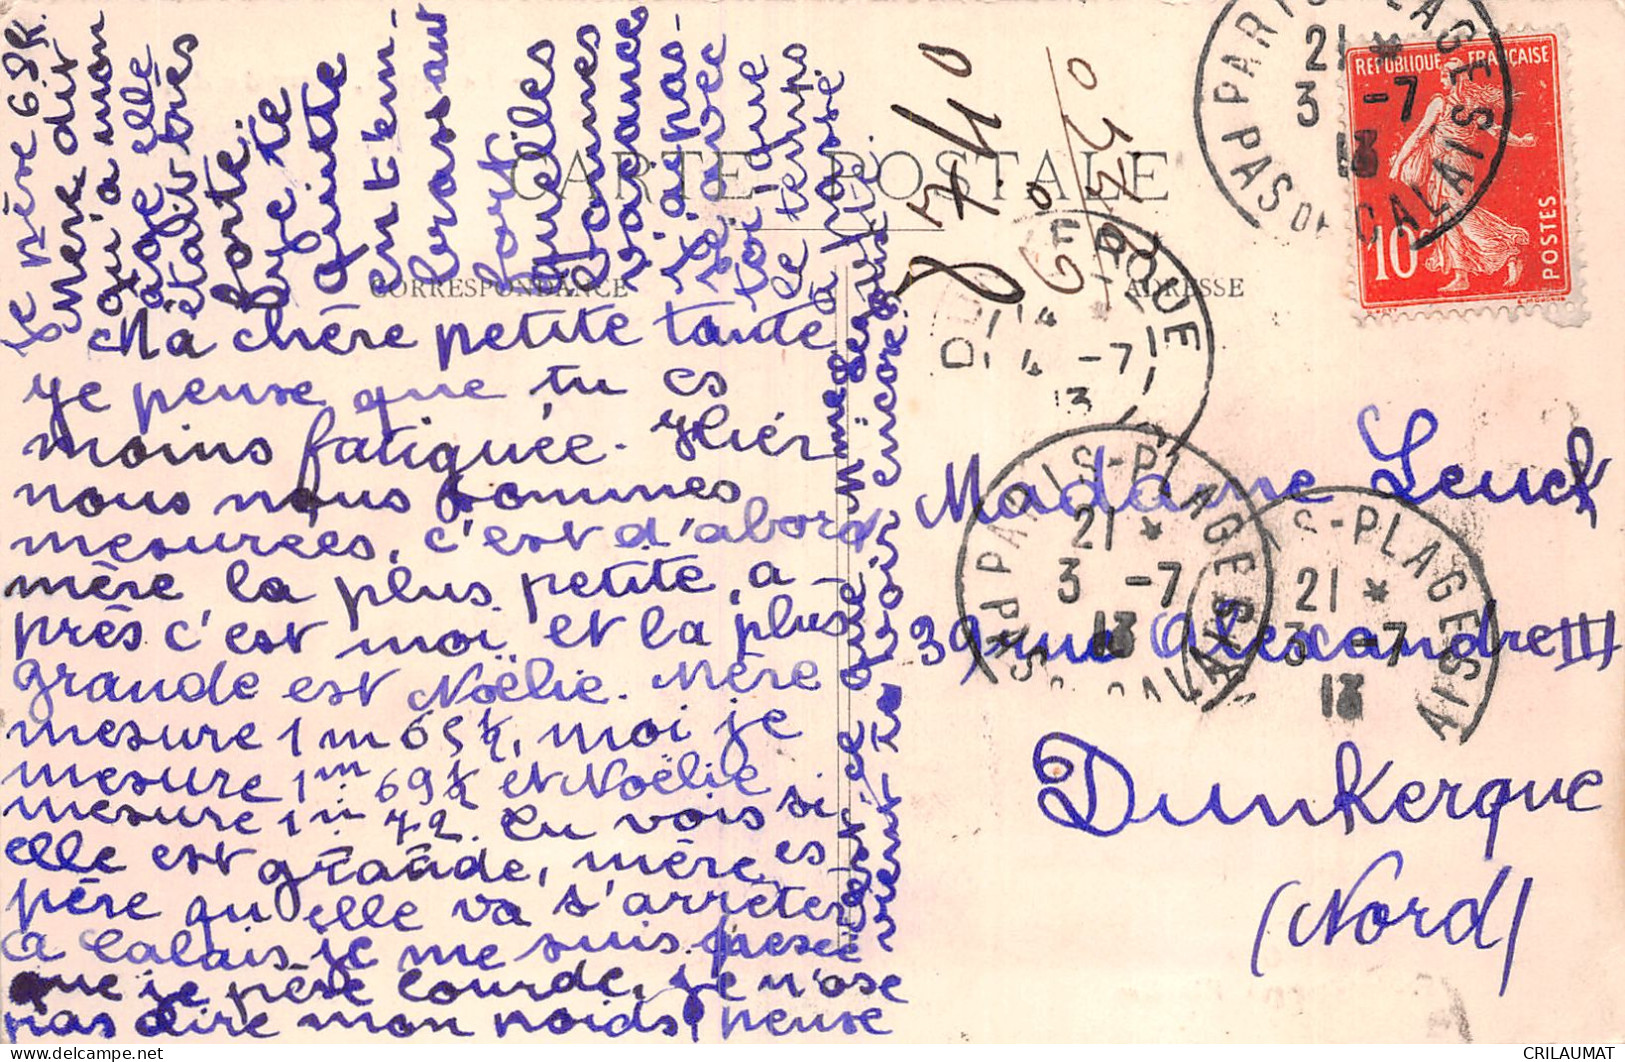 CARTE POSTALE
CORRESPONDANCE
ADRESSE
Ma chère petite tante
je pense que tu es
moins fatiguée. Hier
nous nous sommes
mesurées, c'est d'abord
mère la plus petite, a-
près c'est moi et la plus
grande est Noëlie. Mère
mesure 1 m 65 ½, moi je
mesure 1 m 69 ½ et Noëlie
mesure 1 m 72. Tu vois si
elle est grande, mère es-
père qu'elle va s'arrêter
à Calais je me suis pesée
que je pèse lourde, je n'ose
pas dire mon poids, pense
je pèse 63 K.
mère dit
qu'à mon
âge elle
était très
forte.
Je te
quitte
en t'em-
brassant
fort.
Quelles
bonnes
vacances
j'ai pas-
sé avec
toi que
ce temps
a passé
Madame Leuck
39 rue Alexandre III
Dunkerque
(Nord)
REPUBLIQUE FRANÇAISE
10c
POSTES
PARIS-PLAGE
21 *
3 -7
13
PAS DE CALAIS
DUNKERQUE
4 -7
13
PARIS-PLAGE
21 *
3 -7
13
PAS CALAIS
IS-PLAGE
21 *
3 -7
13
AIS
CRILAUMAT